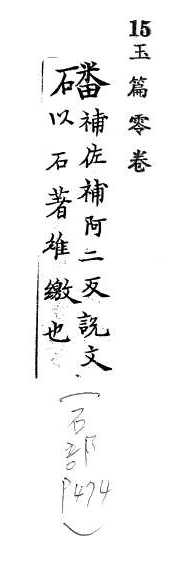 15玉篇零卷
磻補佐補阿二反說文
石以石著雄繳也
(石部P474)